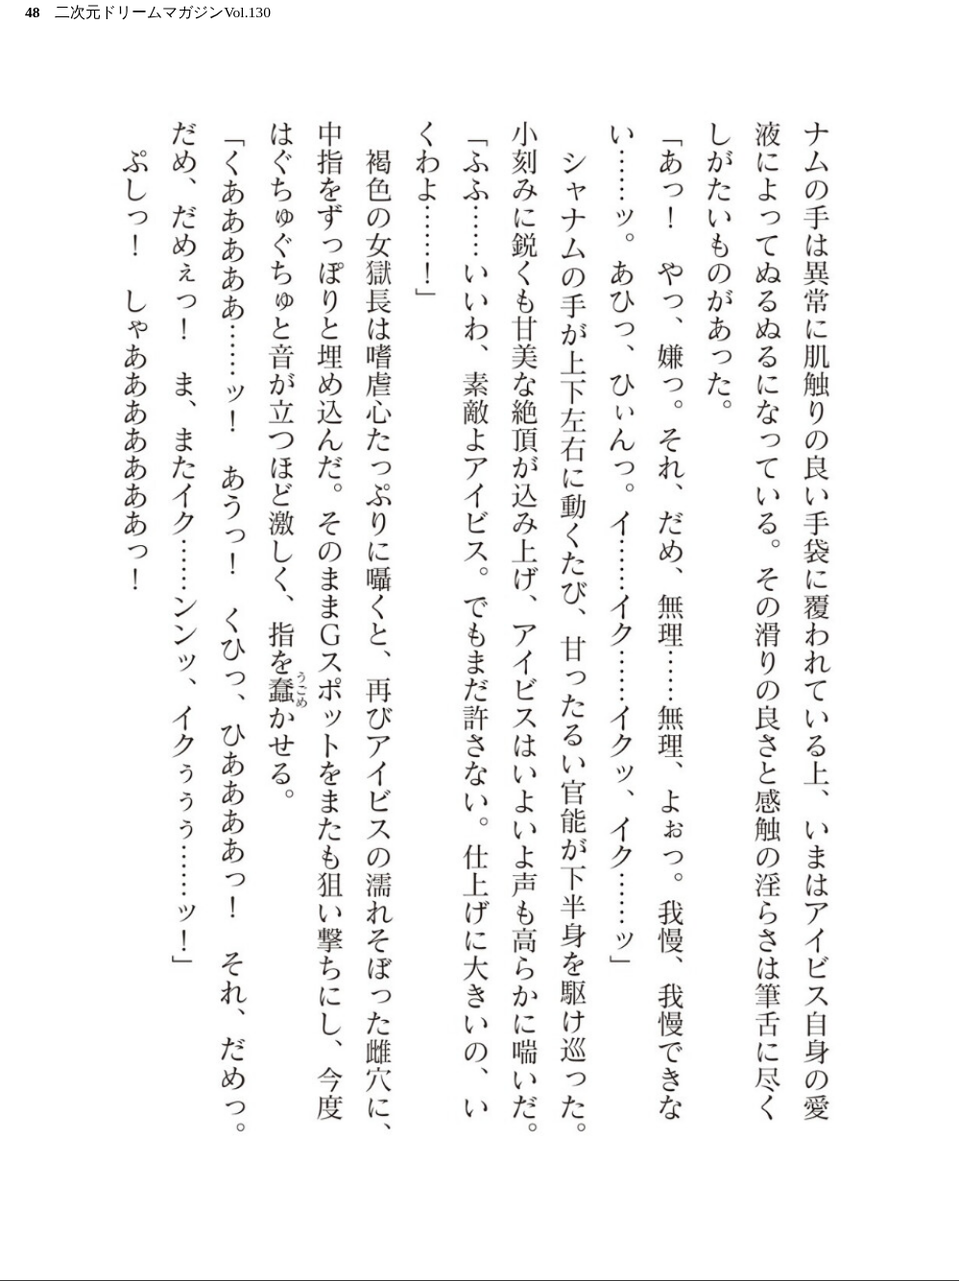 48　二次元ドリームマガジンVol.130
ナムの手は異常に肌触りの良い手袋に覆われている上、いまはアイビス自身の愛
液によってぬるぬるになっている。その滑りの良さと感触の淫らさは筆舌に尽く
しがたいものがあった。
「あっ！　やっ、嫌っ。それ、だめ、無理……無理、よぉっ。我慢、我慢できな
い……ッ。あひっ、ひぃんっ。イ……イク……イクッ、イク……ッ」
　シャナムの手が上下左右に動くたび、甘ったるい官能が下半身を駆け巡った。
小刻みに鋭くも甘美な絶頂が込み上げ、アイビスはいよいよ声も高らかに喘いだ。
「ふふ……いいわ、素敵よアイビス。でもまだ許さない。仕上げに大きいの、い
くわよ……！」
　褐色の女獄長は嗜虐心たっぷりに囁くと、再びアイビスの濡れそぼった雌穴に、
中指をずっぽりと埋め込んだ。そのままGスポットをまたも狙い撃ちにし、今度
はぐちゅぐちゅと音が立つほど激しく、指を蠢かせる。
うごめ
「くああああぁ……ッ！　あうっ！　くひっ、ひああああっ！　それ、だめっ。
だめ、だめぇっ！　ま、またイク……ンンッ、イクぅぅぅ……ッ！」
　ぷしっ！　しゃああああああああっ！